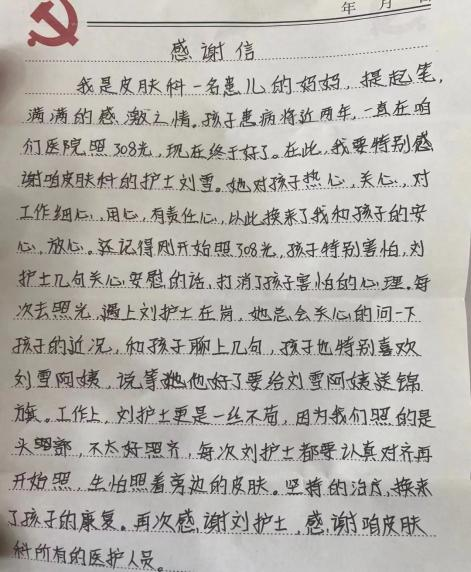 年 月
感谢信
我是皮肤科一名患儿的妈妈，提起笔，
满满的感激之情。孩子患病将近两年，一直在咱
们医院照308光，现在终于好了。在此，我要特别感
谢咱皮肤科的护士刘雪。她对孩子热心，关心，对
工作细心，用心，有责任心，以此换来了我和孩子的安
心，放心。还记得刚开始照308光，孩子特别害怕，刘
护士几句关心安慰的话，打消了孩子害怕的心理。每
次去照光，遇上刘护士在岗，她总会关心的问一下
孩子的近况，和孩子聊上几句，孩子也特别喜欢
刘雪阿姨，说等他好了要给刘雪阿姨送锦
旗。工作上，刘护士更是一丝不苟，因为我们照的是
头部，不太好照齐，每次刘护士都要认真对齐再
开始照，生怕照着旁边的皮肤。坚持的治疗，换来
了孩子的康复。再次感谢刘护士，感谢咱皮肤
科所有的医护人员。